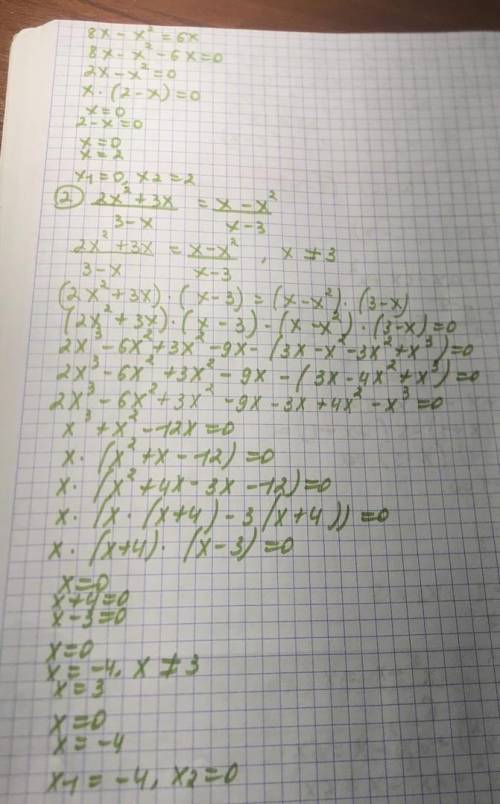 8x - x² = 6x
8x - x² - 6x = 0
2x - x² = 0
x · (2 - x) = 0
x = 0
2 - x = 0
x = 0
x = 2
x₁ = 0, x₂ = 2
② (2x² + 3x)/(3 - x) = (x - x²)/(x - 3)
(2x² + 3x)/(3 - x) = (x - x²)/(x - 3), x ≠ 3
(2x² + 3x) · (x - 3) = (x - x²) · (3 - x)
(2x² + 3x) · (x - 3) - (x - x²) · (3 - x) = 0
2x³ - 6x² + 3x² - 9x - (3x - x² - 3x² + x³) = 0
2x³ - 6x² + 3x² - 9x - (3x - 4x² + x³) = 0
2x³ - 6x² + 3x² - 9x - 3x + 4x² - x³ = 0
x³ + x² - 12x = 0
x · (x² + x - 12) = 0
x · (x² + 4x - 3x - 12) = 0
x · (x · (x + 4) - 3(x + 4)) = 0
x · (x + 4) · (x - 3) = 0
x = 0
x + 4 = 0
x - 3 = 0
x = 0
x = -4, x ≠ 3
x = 3
x = 0
x = -4
x₁ = -4, x₂ = 0